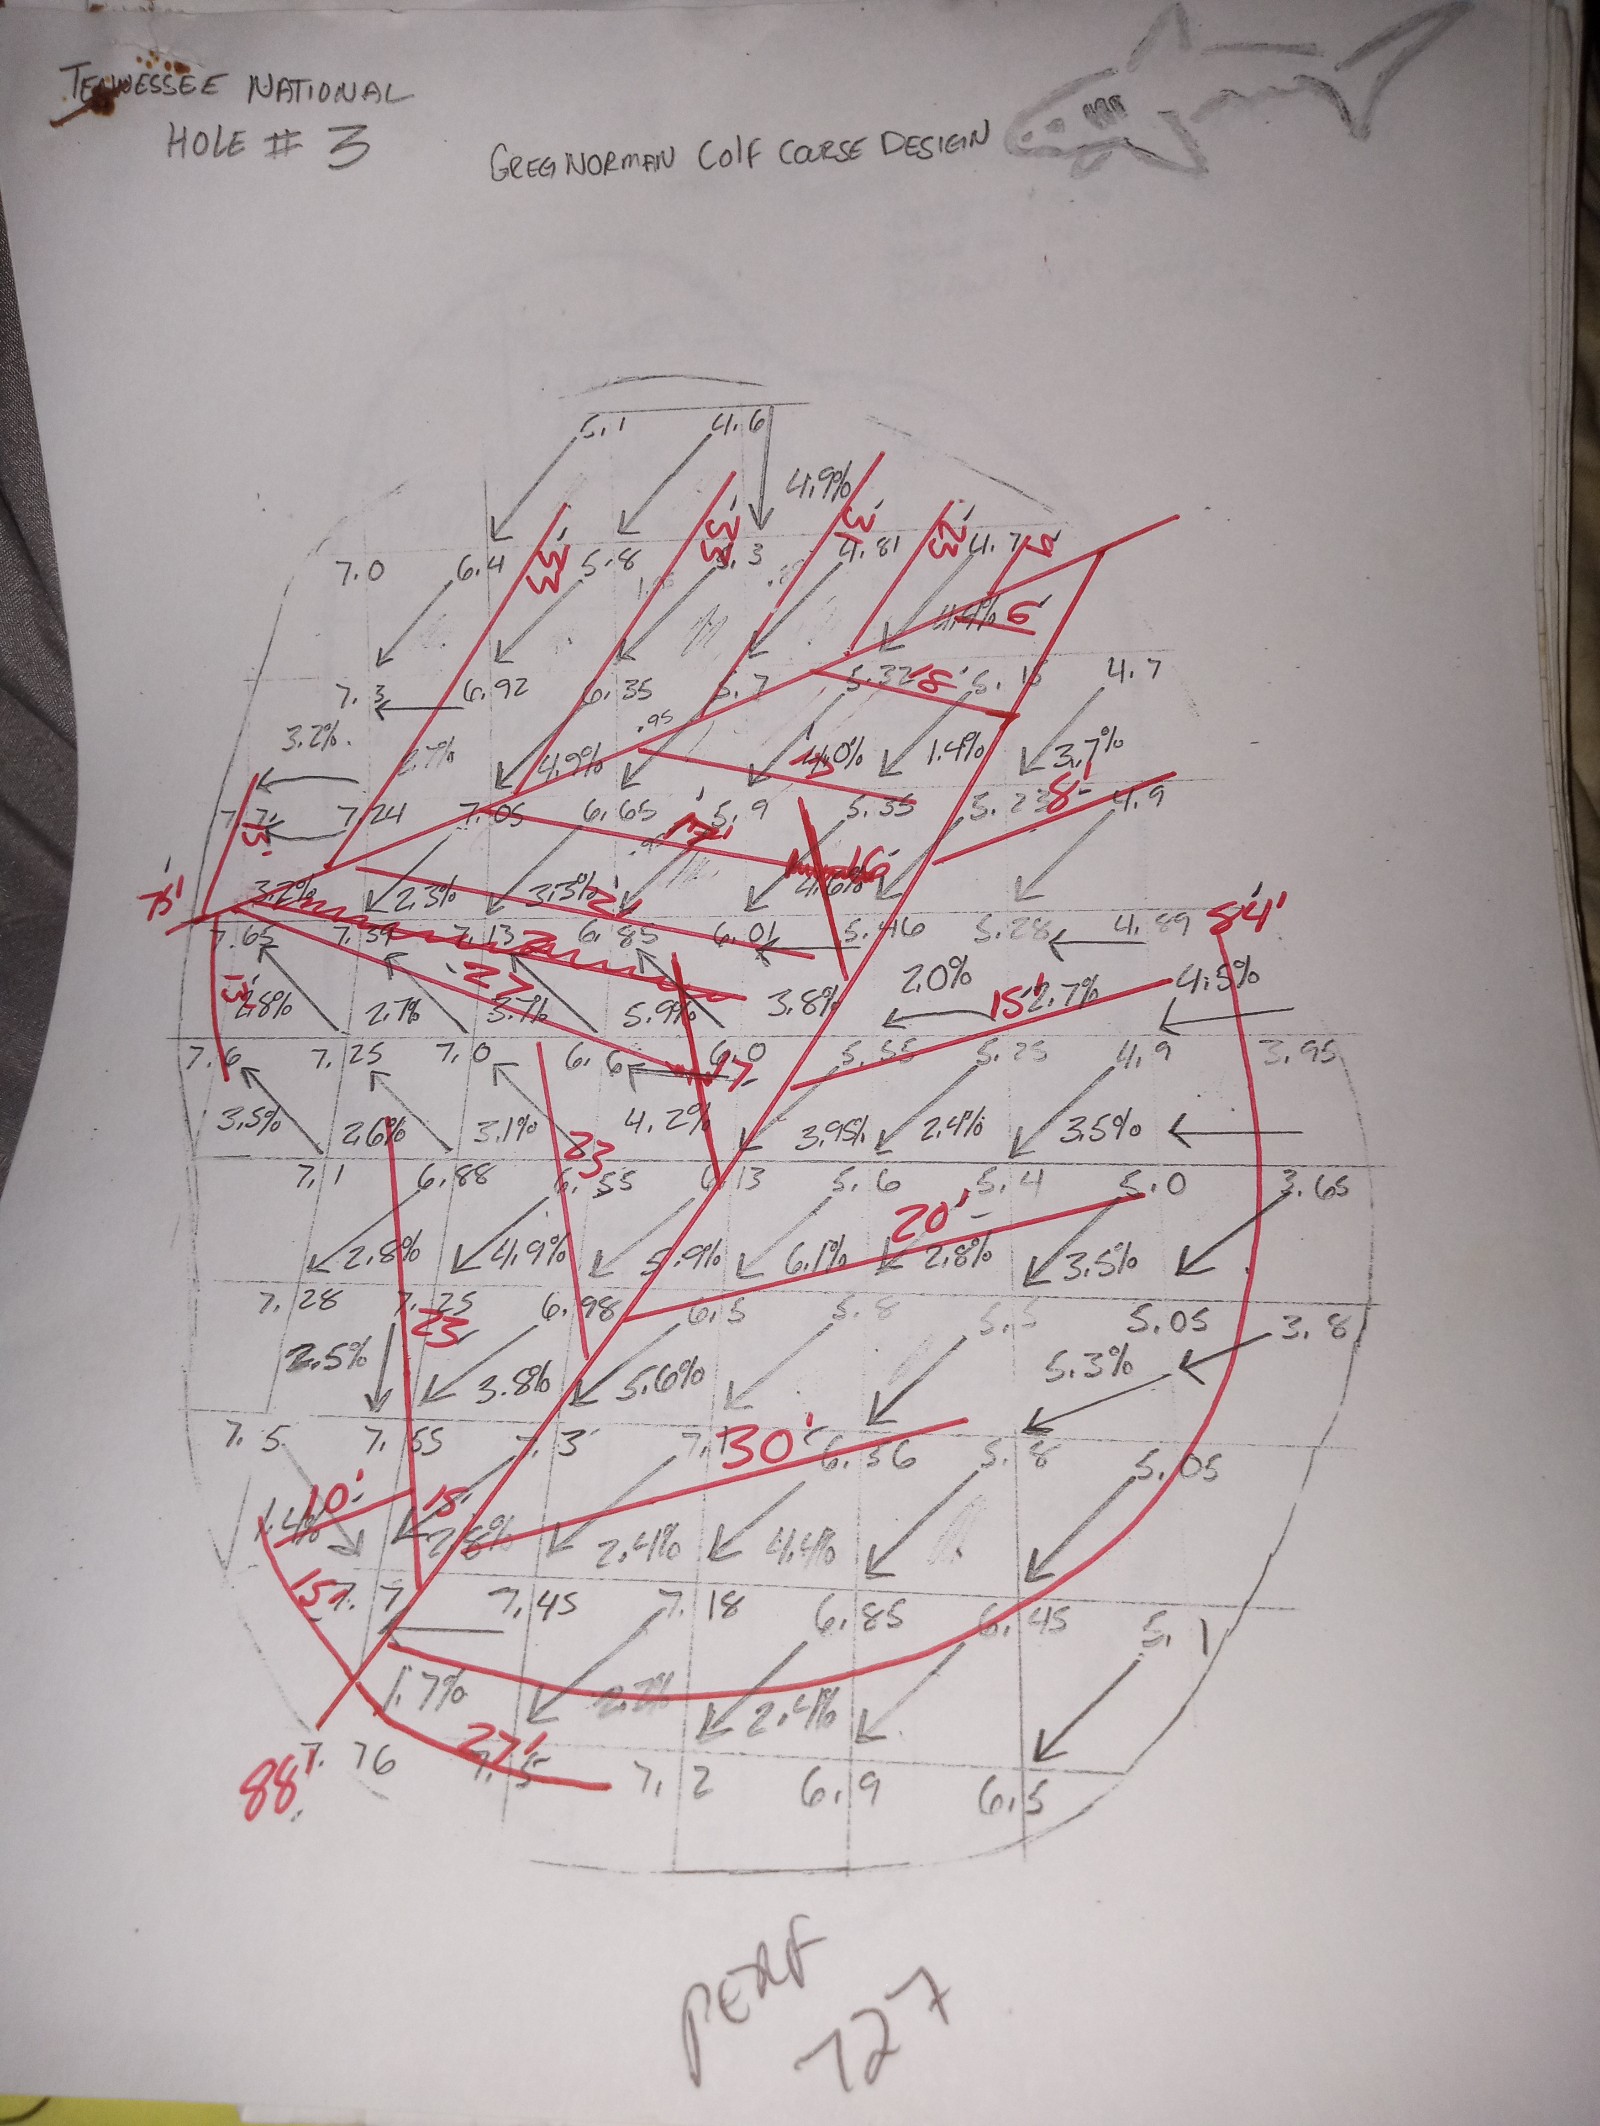 TENNESSEE NATIONAL
HOLE # 3
GREG NORMAN GOLF COURSE DESIGN
5.1 4.6
4.9%
33' 33' 31' 23' 9'
7.0 6.4 5.8 5.3 4.81 4.7
4.4% 6'
7.3 6.92 6.35 5.7 5.32 18' 5.15 4.7
.95
3.2% 2.7% 4.9% 4.0% 1.4% 3.7%
7.7 7.24 7.05 6.65 5.9 5.55 5.23 8' 4.9
13' 17' 16'
75' 3.2% 2.3% 3.3% 21' 4.6%
84'
7.65 7.39 7.13 6.85 6.01 5.46 5.28 4.89
27' 2.0% 4.5%
13' 2.8% 2.7% 3.7% 5.9% 3.8% 15' 2.7%
7.6 7.25 7.0 6.6 6.0 5.55 5.25 4.9 3.95
17'
3.5% 2.6% 3.1% 4.2% 3.95% 2.4% 3.5%
23
7.1 6.88 6.55 6.13 5.6 5.4 5.0 3.65
20'
2.8% 4.9% 5.9% 6.1% 2.8% 3.5%
7.28 7.25 6.98 6.5 5.8 5.5 5.05 3.8
23'
2.5% 3.8% 5.6% 5.3%
7.5 7.55 7.3 7.1 30' 6.56 5.8 5.05
10' 15'
1.4% 2.8% 2.4% 4.4%
15' 7.7 7.45 7.18 6.85 6.45 5.1
1.7% 2.2% 2.4%
27'
7.76 7.5 7.2 6.9 6.5
88'
PERF
727